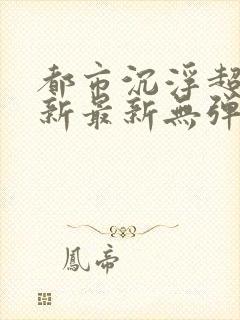 都市沉浮超
新最新無彈
鳳帝